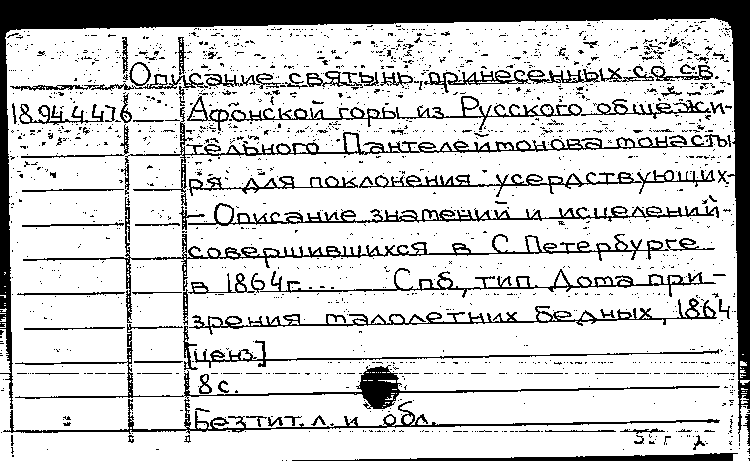 Описание святынь, принесенных со св.
18.94.4.476 Афонской горы из Русского общежи-
тельного Пантелеймонова монасты
ря для поклонения усердствующих-
- Описание знамений и исцелений-
совершившихся в С. Петербурге
в 1864г... Спб, тип. Дома при-
зрения малолетних бедных, 1864
[ценз]
8 с.
Без тит. л. и обл.